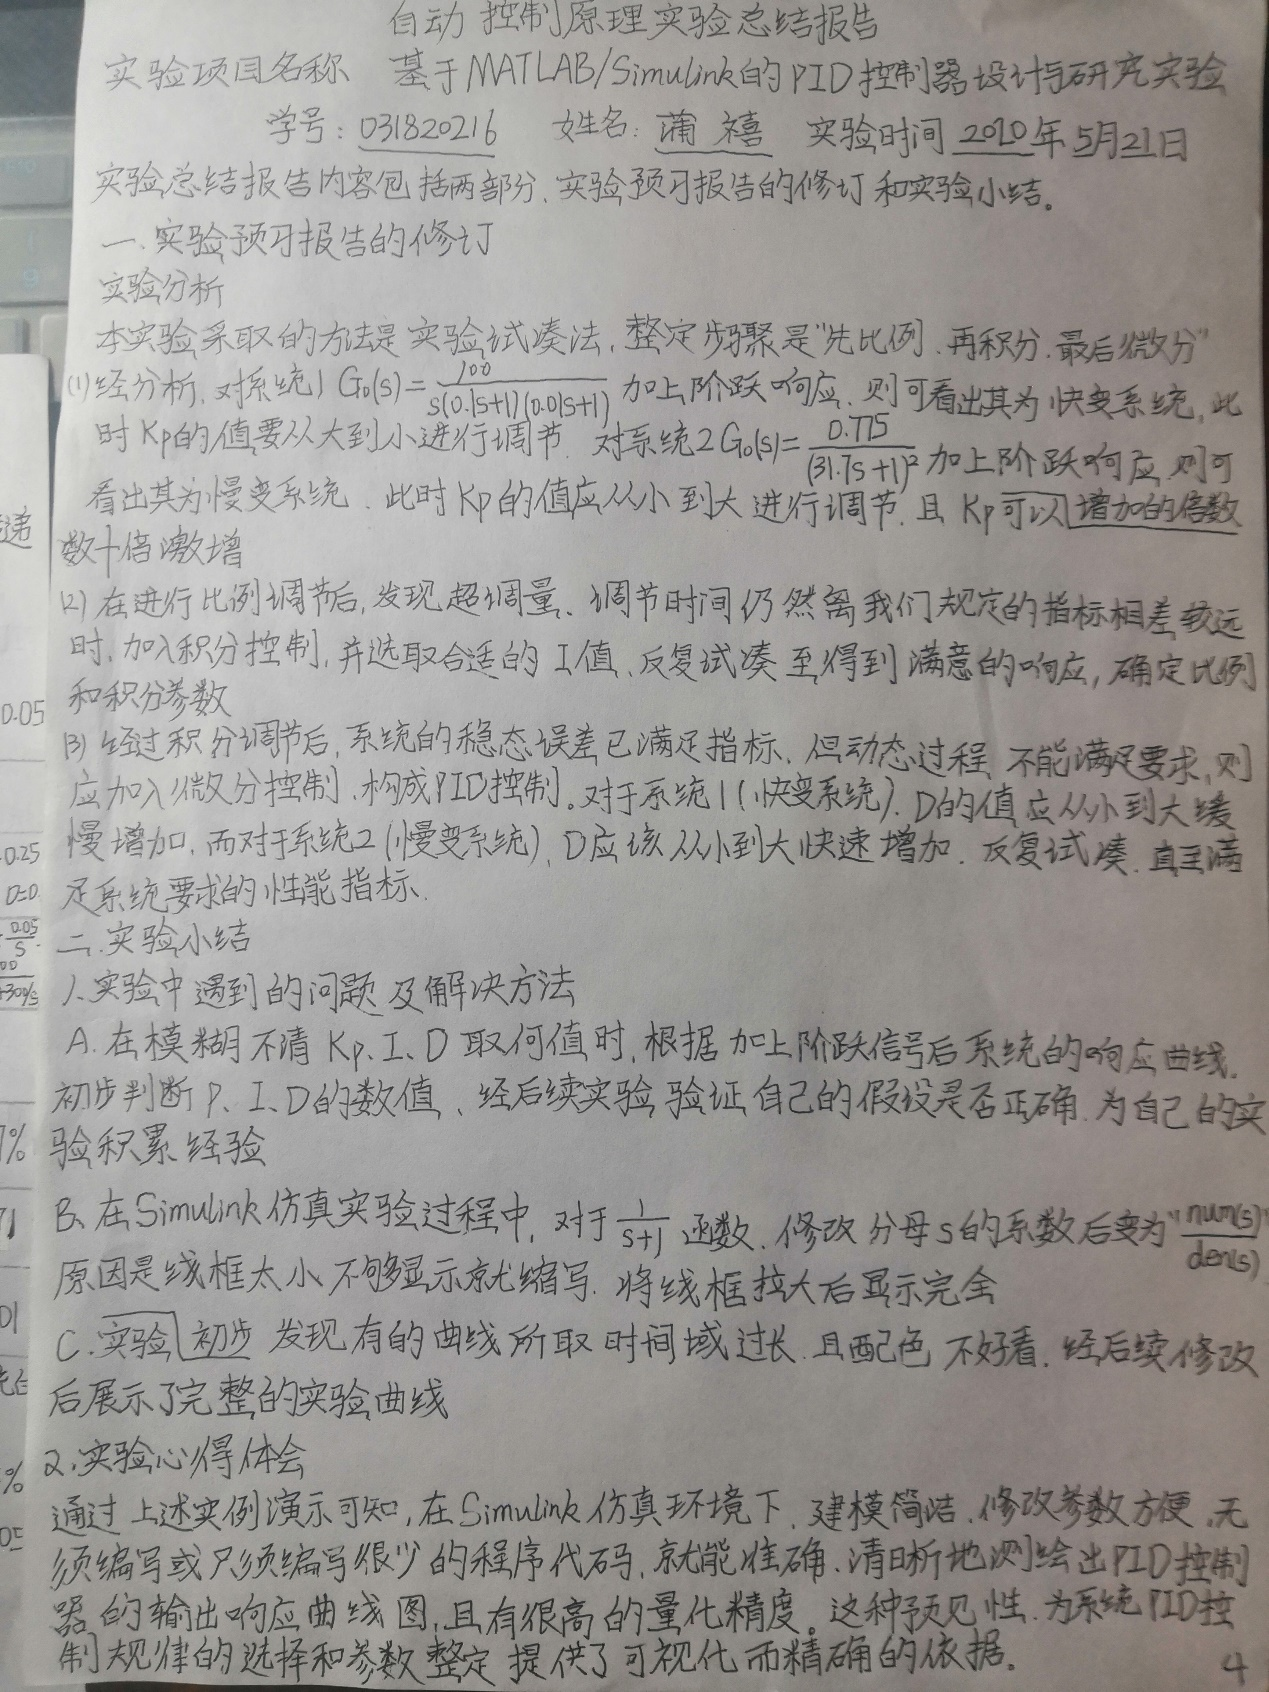 自动控制原理实验总结报告
实验项目名称 基于MATLAB/Simulink的PID控制器设计与研究实验
学号:031820216 姓名:蒲禧 实验时间2020年5月21日
实验总结报告内容包括两部分、实验预习报告的修订和实验小结。
一.实验预习报告的修订
实验分析
本实验采取的方法是实验试凑法,整定步骤是"先比例.再积分.最后微分"
(1)经分析,对系统1 G₀(s)=100/s(0.1s+1)(0.01s+1) 加上阶跃响应,则可看出其为快变系统,此
时Kp的值要从大到小进行调节.对系统2G₀(s)=0.775/(31.7s+1)²加上阶跃响应,则可
看出其为慢变系统.此时Kp的值应从小到大进行调节.且Kp可以增加的倍数
数十倍激增
(2)在进行比例调节后,发现超调量、调节时间仍然离我们规定的指标相差较远
时,加入积分控制,并选取合适的I值、反复试凑至得到满意的响应,确定比例
和积分参数
(3)经过积分调节后,系统的稳态误差已满足指标、但动态过程不能满足要求,则
应加入微分控制.构成PID控制。对于系统1(快变系统).D的值应从小到大缓
慢增加,而对于系统2(慢变系统),D应该从小到大快速增加.反复试凑.直至满
足系统要求的性能指标.
二.实验小结
1.实验中遇到的问题及解决方法
A.在模糊不清Kp、I、D取何值时,根据加上阶跃信号后系统的响应曲线.
初步判断P、I、D的数值、经后续实验验证自己的假设是否正确.为自己的实
验积累经验
B、在Simulink仿真实验过程中,对于1/s+1函数.修改分母s的系数后变为"num(s)/den(s)"
原因是线框太小不够显示就缩写.将线框拉大后显示完全
C.实验初步发现有的曲线所取时间域过长.且配色不好看.经后续修改
后展示了完整的实验曲线
2.实验心得体会
通过上述实例演示可知,在Simulink仿真环境下.建模简洁.修改参数方便.无
须编写或只须编写很少的程序代码,就能准确.清晰地测绘出PID控制
器的输出响应曲线图,且有很高的量化精度。这种预见性.为系统PID控
制规律的选择和参数整定提供了可视化而精确的依据。
4
递
0.05
0.25
D=0
0.05
S
+300/s
7%
71
01
%
05